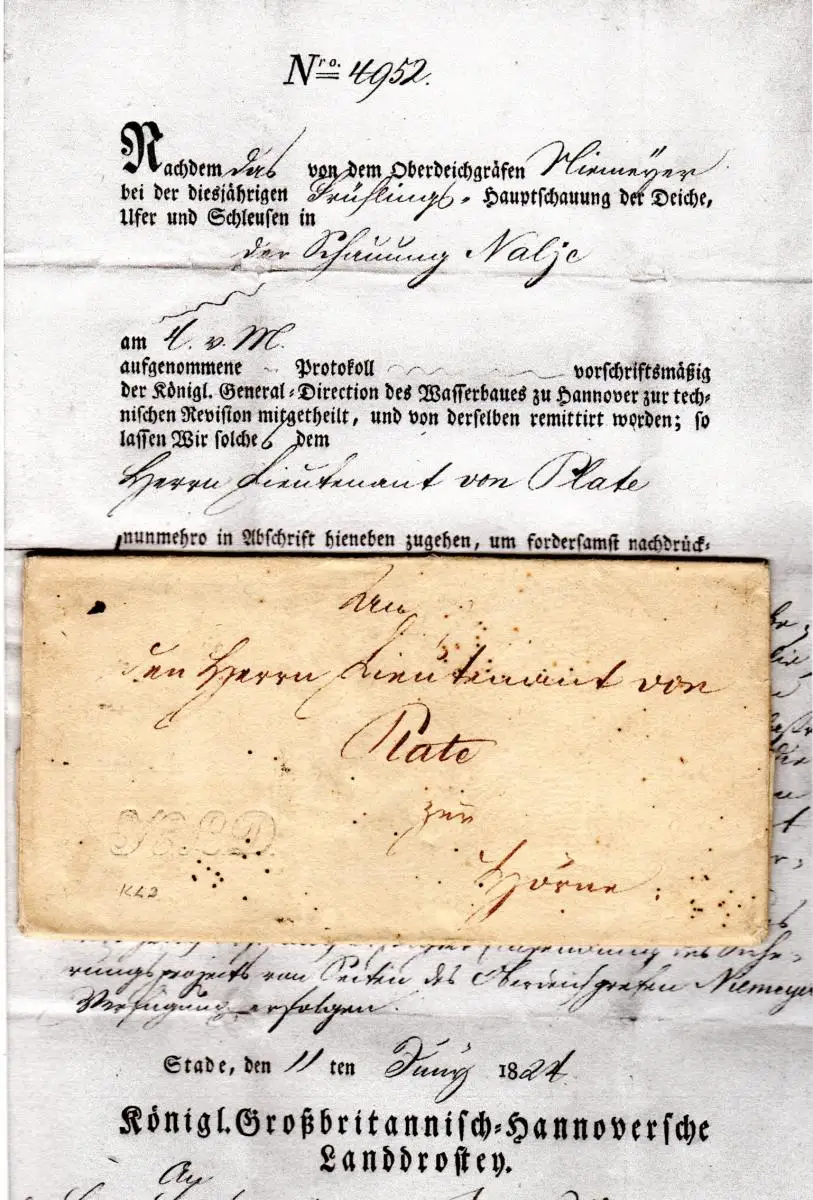 Nro. 4952.
Nachdem das von dem Oberdeichgräfen Niemeyer
bei der diesjährigen Frühlings- Hauptschauung der Deiche,
Ufer und Schleusen in
der Schauung Nalje
am 4. v. M.
aufgenommene Protokoll vorschriftsmäßig
der Königl. General-Direction des Wasserbaues zu Hannover zur tech-
nischen Revision mitgetheilt, und von derselben remittirt worden; so
lassen Wir solches dem
Herrn Lieutenant von Plate
nunmehro in Abschrift hieneben zugehen, um fordersamst nachdrück-
An
den Herrn Lieutenant von
Plate
zur
Hörne.
K.L.D.
KLD
rungsprojects von Seiten des Oberdeichgrefen Niemeyer
Verfügung erfolgen.
Stade, den 11ten Juny 1824.
Königl. Großbritannisch-Hannoversche
Landdrostey.
An